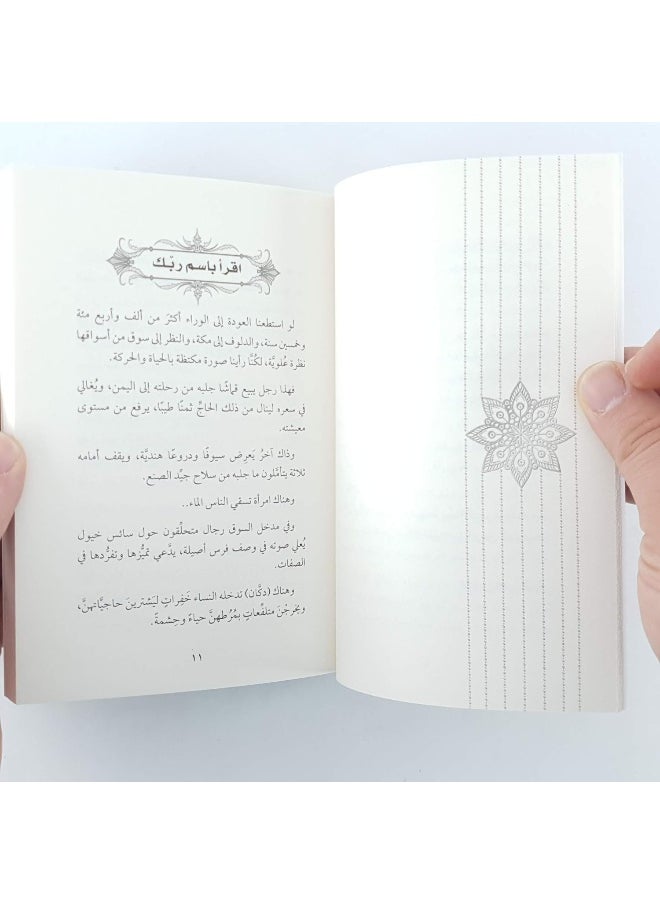 اقرأ باسم ربّك
لو استطعنا العودة إلى الوراء أكثرَ من ألف وأربع مئة
وخمسين سنة، والدلوف إلى مكة، والنظر إلى سوق من أسواقها
نظرة عُلويَّة، لكُنَّا رأينا صورة مكتظة بالحياة والحركة.
فهذا رجل يبيع قماشًا جلبه من رحلته إلى اليمن، ويُغالي
في سعره لينال من ذلك الحاجِّ ثمنًا طيبًا، يرفع من مستوى
معيشته.
وذاك آخرُ يَعرِض سيوفًا ودروعًا هنديَّة، ويقف أمامه
ثلاثة يتأمَّلون ما جلبه من سلاح جيِّد الصنع.
وهناك امرأة تسقي الناس الماء..
وفي مدخل السوق رجال متحلِّقون حول سائس خيول
يُعلي صوته في وصف فرس أصيلة، يدَّعي تميُّزها وتفرُّدها في
الصفات.
وهناك (دكَّان) تدخله النساء خَفِراتٍ ليَشترينَ حاجيَّاتهنَّ،
ويخرجْنَ متلفِّعاتٍ بمُرُطهنَّ حياءً وحِشمةً.
١١